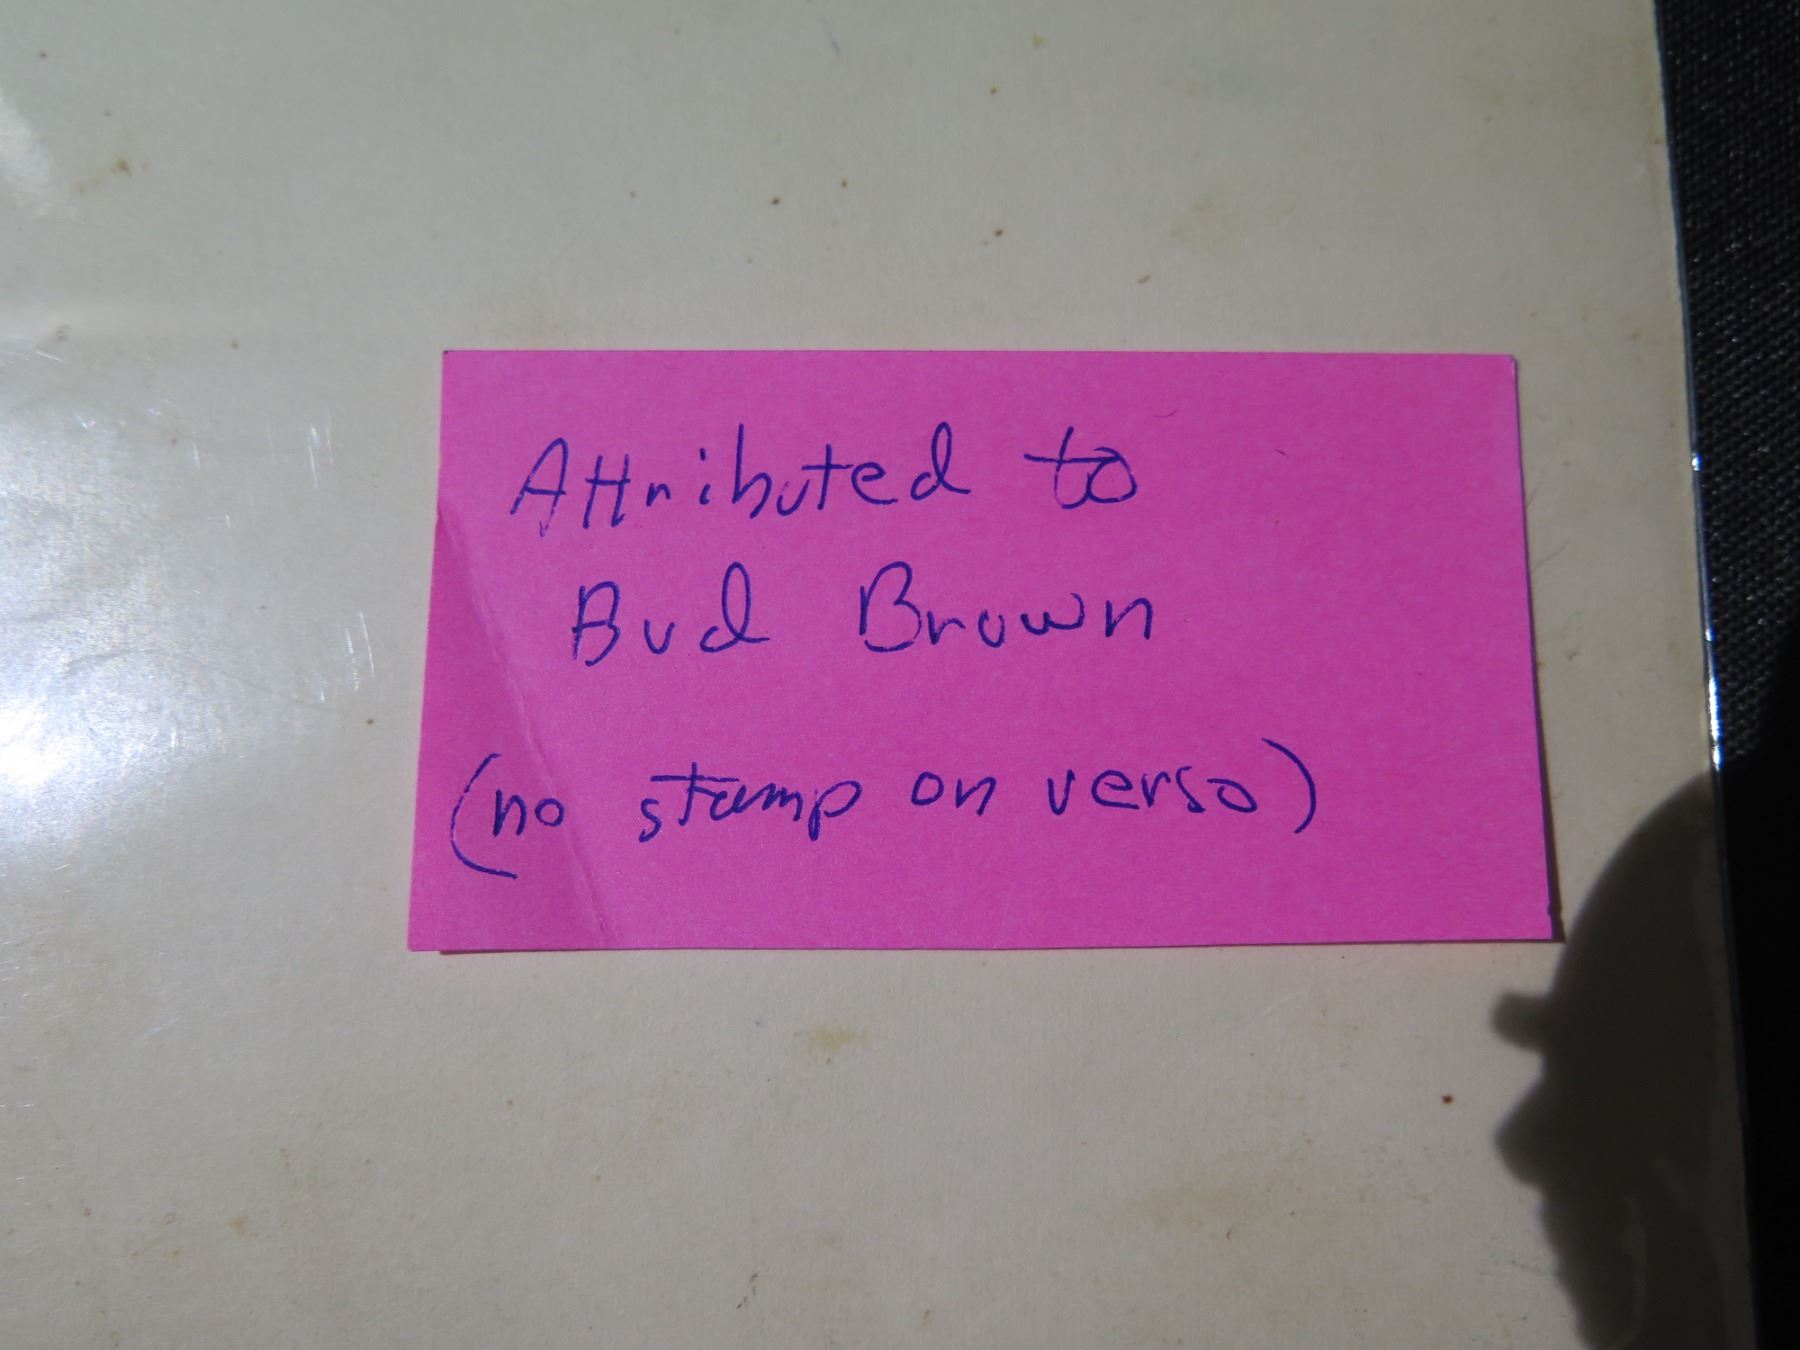 Attributed to
Bud Brown
(no stamp on verso)